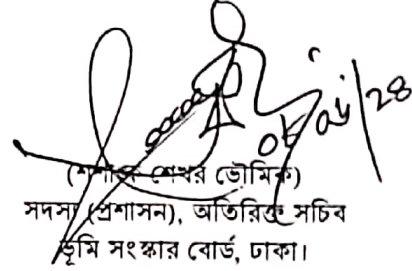 (শশাঙ্ক শেখর ভৌমিক)
সদস্য (প্রশাসন), অতিরিক্ত সচিব
ভূমি সংস্কার বোর্ড, ঢাকা।